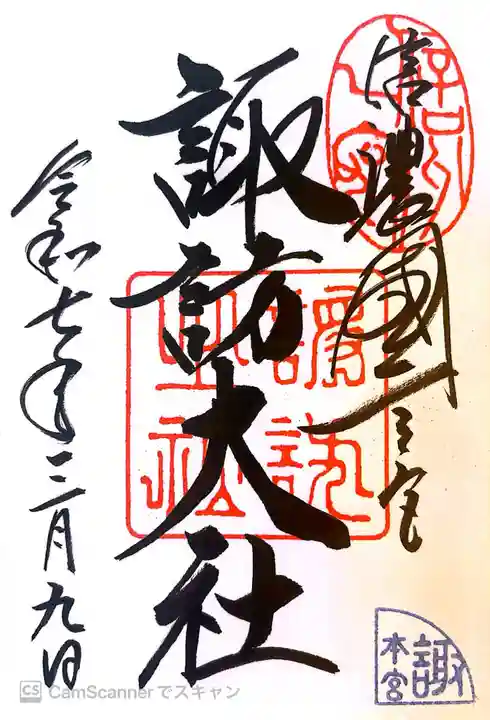 信濃國一之宮
諏訪大社
令和七年三月九日
諏
本宮
CS CamScannerでスキャン